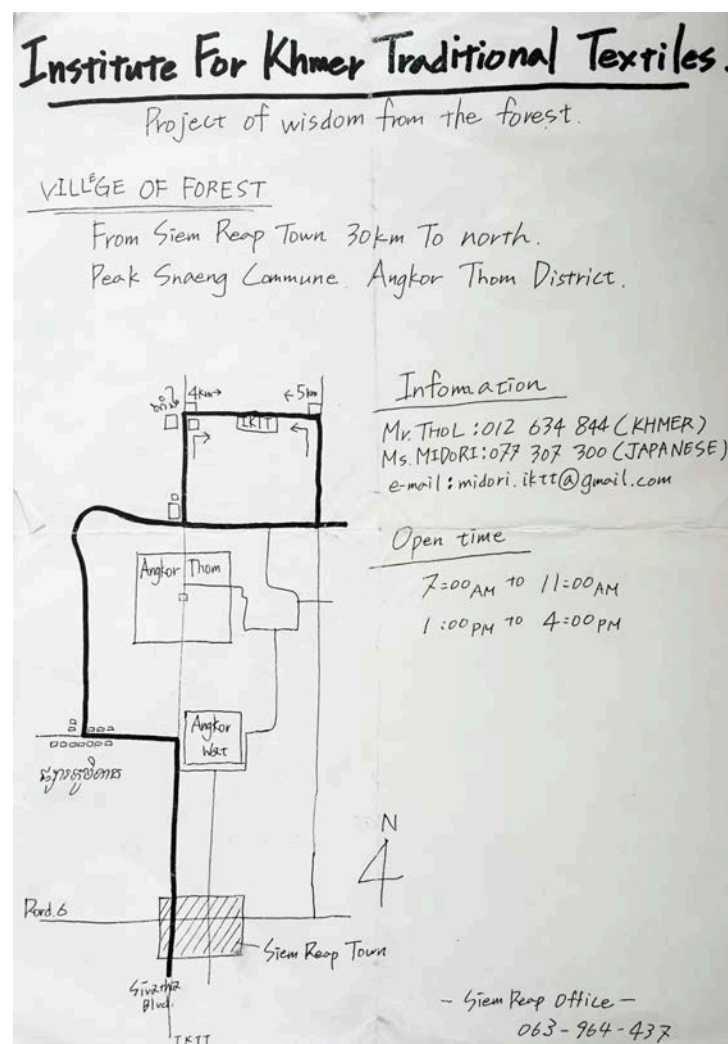 Institute For Khmer Traditional Textiles.
Project of wisdom from the forest.
VILLEGE OF FOREST
From Siem Reap Town 30km To north.
Peak Snaeng Commune. Angkor Thom District.
4km→
←5km
IKTT
Infomation
Mr. THOL : 012 634 844 (KHMER)
Ms. MIDORI : 077 307 300 (JAPANESE)
e-mail : midori.iktt@gmail.com
Open time
7:00 AM to 11:00 AM
1:00 PM to 4:00 PM
Angkor Thom
Angkor Wat
N
Rord.6
Siem Reap Town
Sivatha Blvd.
IKTT
- Siem Reap Office -
063-964-437